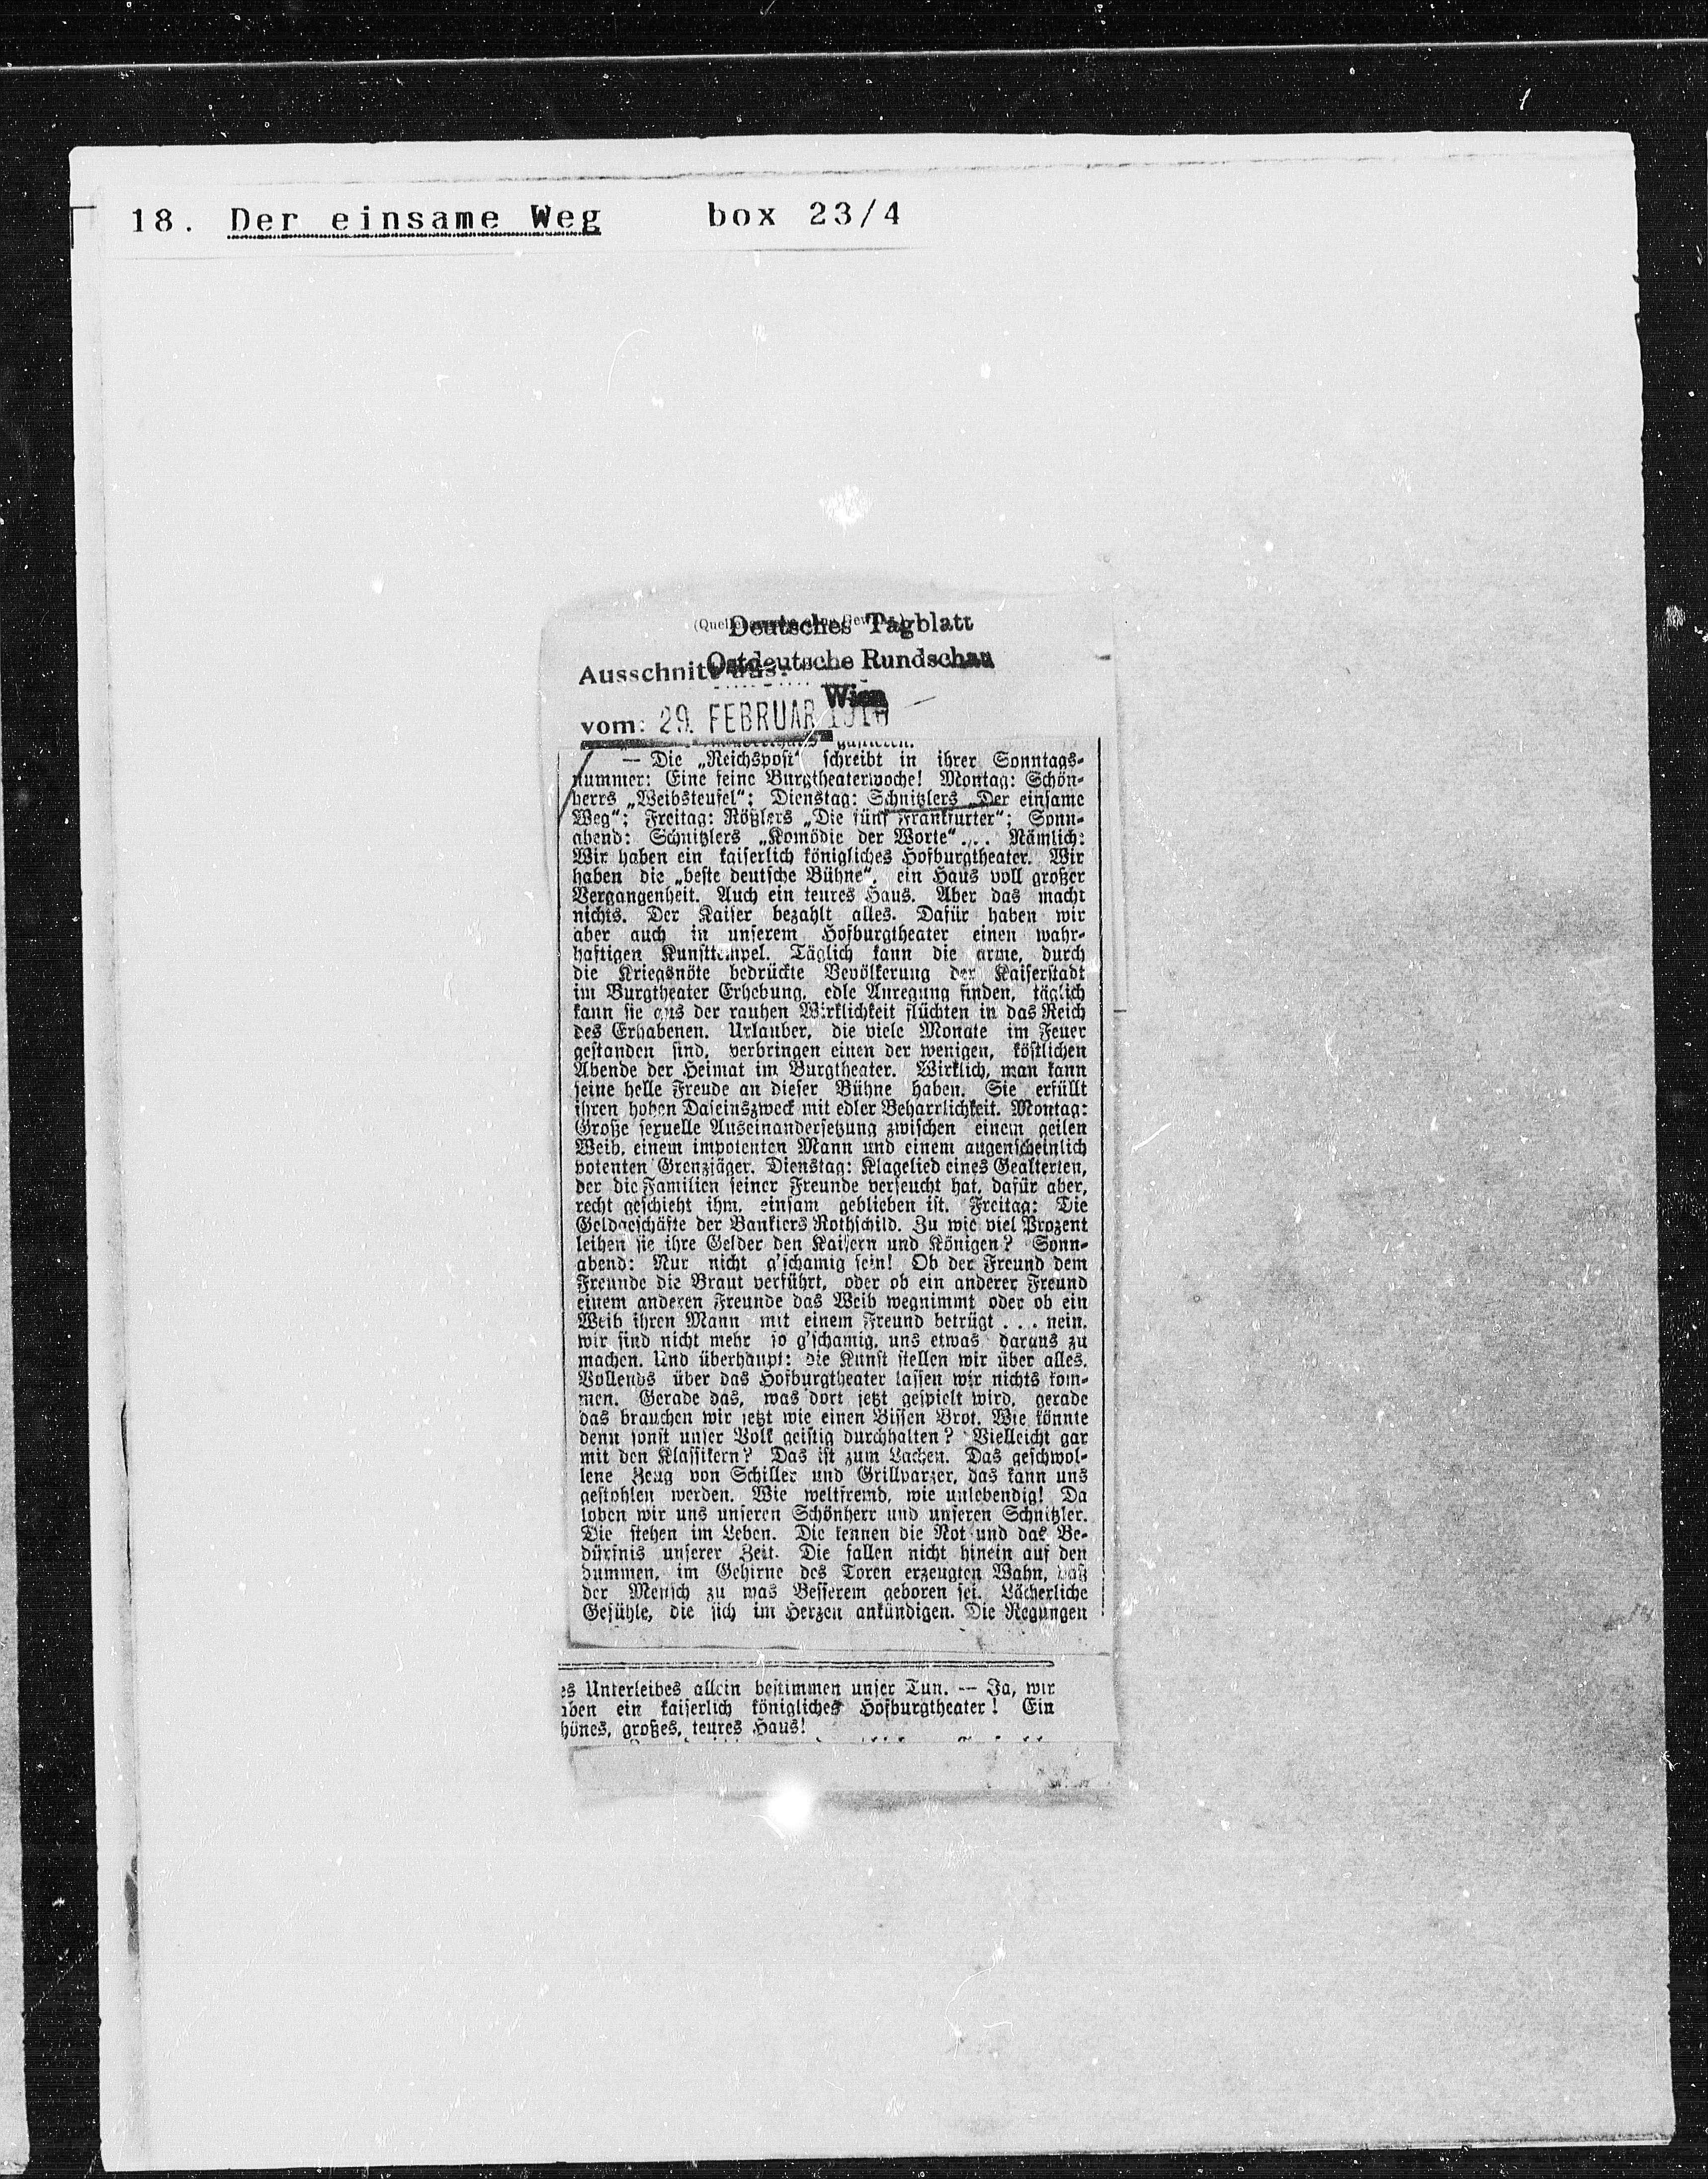 18. Der einsame Weg box 23/4
Deutsches Tagblatt
Ostdeutsche Rundschau
Ausschnitt aus:
Wien
vom: 29. FEBRUAR 1916
— Die „Reichspost“ schreibt in ihrer Sonntags-
nummer: Eine feine Burgtheaterwoche! Montag: Schön-
herrs „Weibsteufel“; Dienstag: Schnitzlers „Der einsame
Weg“; Freitag: Rößlers „Die fünf Frankfurter“; Sonn-
abend: Schnitzlers „Komödie der Worte“ ... Nämlich:
Wir haben ein kaiserlich königliches Hofburgtheater. Wir
haben die „beste deutsche Bühne“, ein Haus voll großer
Vergangenheit. Auch ein teures Haus. Aber das macht
nichts. Der Kaiser bezahlt alles. Dafür haben wir
aber auch in unserem Hofburgtheater einen wahr-
haftigen Kunsttempel. Täglich kann die arme, durch
die Kriegsnöte bedrückte Bevölkerung der Kaiserstadt
im Burgtheater Erhebung, edle Anregung finden, täglich
kann sie aus der rauhen Wirklichkeit flüchten in das Reich
des Erhabenen. Urlauber, die viele Monate im Feuer
gestanden sind, verbringen einen der wenigen, köstlichen
Abende der Heimat im Burgtheater. Wirklich, man kann
seine helle Freude an dieser Bühne haben. Sie erfüllt
ihren hohen Daseinszweck mit edler Beharrlichkeit. Montag:
Große sexuelle Auseinandersetzung zwischen einem geilen
Weib, einem impotenten Mann und einem augenscheinlich
potenten Grenzjäger. Dienstag: Klagelied eines Gealterten,
der die Familien seiner Freunde verseucht hat, dafür aber,
recht geschieht ihm, einsam geblieben ist. Freitag: Die
Geldgeschäfte der Bankiers Rothschild. Zu wie viel Prozent
leihen sie ihre Gelder den Kaisern und Königen? Sonn-
abend: Nur nicht g'schamig sein! Ob der Freund dem
Freunde die Braut verführt, oder ob ein anderer Freund
einem anderen Freunde das Weib wegnimmt oder ob ein
Weib ihren Mann mit einem Freund betrügt ... nein,
wir sind nicht mehr so g'schamig, uns etwas daraus zu
machen. Und überhaupt: die Kunst stellen wir über alles.
Vollends über das Hofburgtheater lassen wir nichts kom-
men. Gerade das, was dort jetzt gespielt wird, gerade
das brauchen wir jetzt wie einen Bissen Brot. Wie könnte
denn sonst unser Volk geistig durchhalten? Vielleicht gar
mit den Klassikern? Das ist zum Lachen. Das geschwol-
lene Zeug von Schiller und Grillparzer, das kann uns
gestohlen werden. Wie weltfremd, wie unlebendig! Da
loben wir uns unseren Schönherr und unseren Schnitzler.
Die stehen im Leben. Die kennen die Not und das Be-
dürfnis unserer Zeit. Die fallen nicht hinein auf den
dummen, im Gehirne des Toren erzeugten Wahn, daß
der Mensch zu was Besserem geboren sei. Lächerliche
Gefühle, die sich im Herzen ankündigen. Die Regungen
es Unterleibes allein bestimmen unser Tun. — Ja, wir
aben ein kaiserlich königliches Hofburgtheater! Ein
hönes, großes, teures Haus!